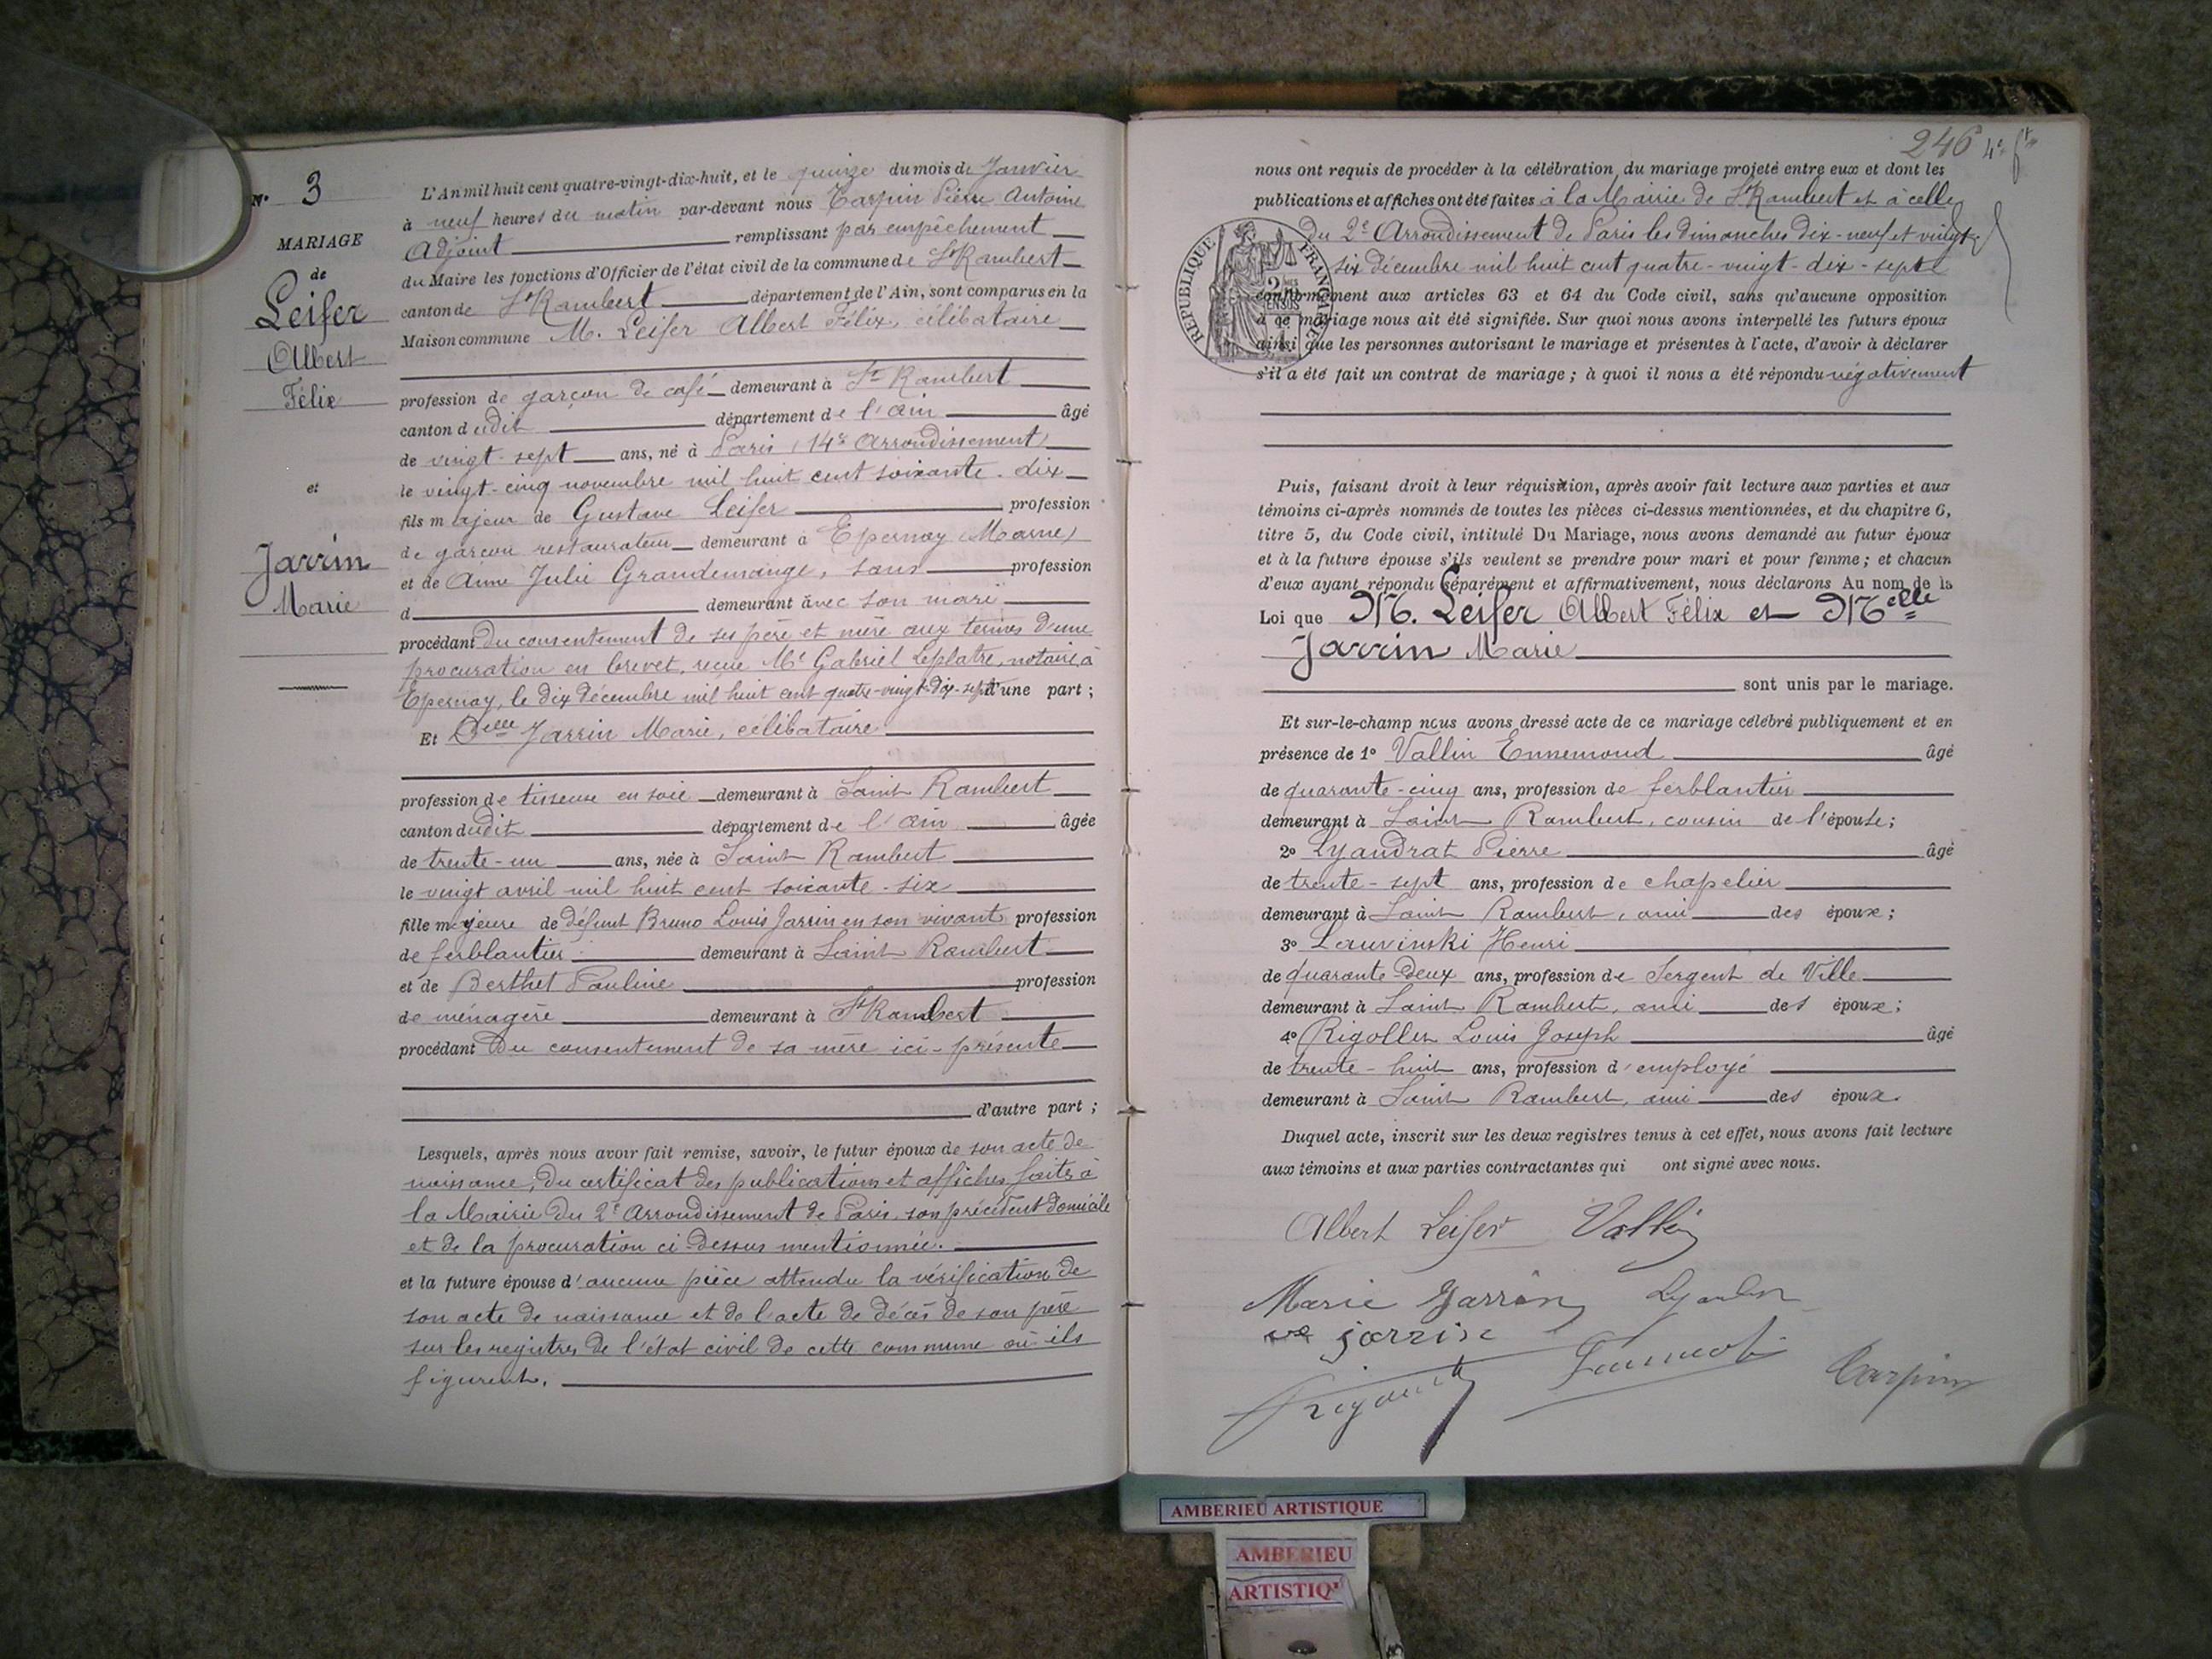 N° 3
MARIAGE
de
Leifer
Albert
Félix
et
Jarrin
Marie
L'An mil huit cent quatre-vingt-dix-huit, et le quinze du mois de Janvier
à neuf heures du matin par-devant nous Tarpin Pierre Antoine
Adjoint remplissant par empêchement
du Maire les fonctions d'Officier de l'état civil de la commune de St Rambert
canton de St Rambert département de l'Ain, sont comparus en la
Maison commune M. Leifer Albert Félix, célibataire
profession de garçon de café demeurant à St Rambert
canton dudit département de l'ain âgé
de vingt-sept ans, né à Paris (14e Arrondissement)
le vingt-cinq novembre mil huit cent soixante-dix
fils majeur de Gustave Leifer profession
de garçon restaurateur demeurant à Epernay (Marne)
et de Aime Julie Grandemange, sans profession
d demeurant avec son mari
procédant du consentement de ses père et mère aux termes d'une
procuration en brevet, reçue Me Gabriel Leplatre, notaire à
Epernay, le dix décembre mil huit cent quatre-vingt-dix-sept d'une part ;
Et Delle Jarrin Marie, célibataire
profession de tisseuse en soie demeurant à Saint Rambert
canton dudit département de l'ain âgée
de trente-un ans, née à Saint Rambert
le vingt avril mil huit cent soixante-six
fille majeure de défunt Bruno Louis Jarrin en son vivant profession
de ferblantier demeurant à Saint Rambert
et de Berthet Pauline profession
de ménagère demeurant à St Rambert
procédant du consentement de sa mère ici-présente
d'autre part ;
Lesquels, après nous avoir fait remise, savoir, le futur époux de son acte de
naissance, du certificat des publications et affiches faites à
la Mairie du 2e Arrondissement de Paris, son précédent domicile
et de la procuration ci-dessus mentionnée.
et la future épouse d'aucune pièce attendu la vérification de
son acte de naissance et de l'acte de décès de son père
sur les registres de l'état civil de cette commune où ils
figurent.
246
nous ont requis de procéder à la célébration du mariage projeté entre eux et dont les
publications et affiches ont été faites à la Mairie de St Rambert et à celle
du 2e Arrondissement de Paris les dimanches dix-neuf et vingt-
six décembre mil huit cent quatre-vingt-dix-sept
conformément aux articles 63 et 64 du Code civil, sans qu'aucune opposition
à ce mariage nous ait été signifiée. Sur quoi nous avons interpellé les futurs époux
ainsi que les personnes autorisant le mariage et présentes à l'acte, d'avoir à déclarer
s'il a été fait un contrat de mariage ; à quoi il nous a été répondu négativement
REPUBLIQUE FRANÇAISE
Puis, faisant droit à leur réquisition, après avoir fait lecture aux parties et aux
témoins ci-après nommés de toutes les pièces ci-dessus mentionnées, et du chapitre 6,
titre 5, du Code civil, intitulé Du Mariage, nous avons demandé au futur époux
et à la future épouse s'ils veulent se prendre pour mari et pour femme ; et chacun
d'eux ayant répondu séparément et affirmativement, nous déclarons Au nom de la
Loi que M. Leifer Albert Félix et Melle
Jarrin Marie
sont unis par le mariage.
Et sur-le-champ nous avons dressé acte de ce mariage célébré publiquement et en
présence de 1° Vallin Ennemond âgé
de quarante-cinq ans, profession de ferblantier
demeurant à Saint Rambert, cousin de l'épouse ;
2° Lyaudrat Pierre âgé
de trente-sept ans, profession de chapelier
demeurant à Saint Rambert, ami des époux ;
3° Lauvinski Henri
de quarante-deux ans, profession de Sergent de Ville
demeurant à Saint Rambert, ami des époux ;
4° Rigollet Louis Joseph âgé
de trente-huit ans, profession d'employé
demeurant à Saint Rambert, ami des époux.
Duquel acte, inscrit sur les deux registres tenus à cet effet, nous avons fait lecture
aux témoins et aux parties contractantes qui ont signé avec nous.
Albert Leifer Vallin
Marie Jarrin
ve jarrin
Tarpin
AMBERIEU ARTISTIQUE
AMBERIEU
ARTISTIQ